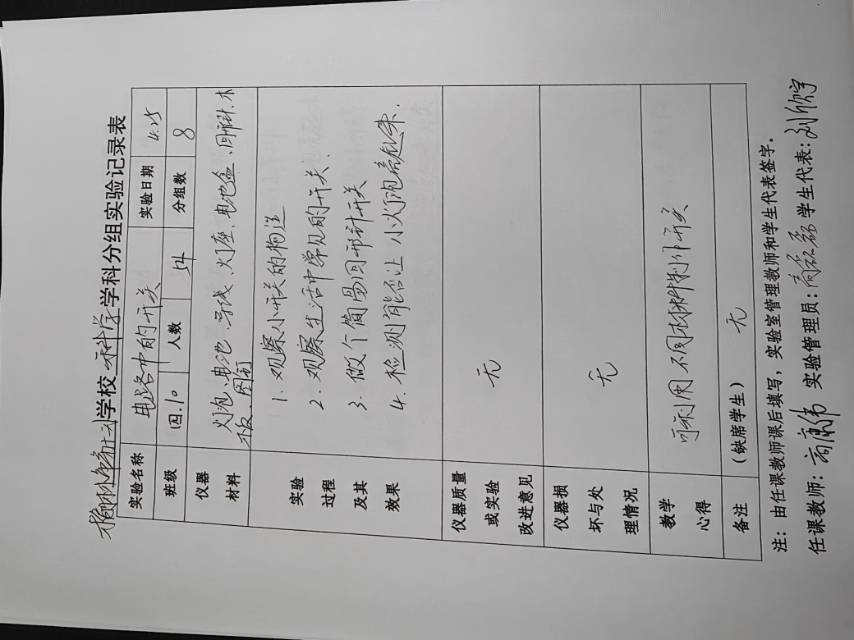 学校 科学 学科分组实验记录表
实验名称 电路中的开关 实验日期 4.25
班级 四.10 人数 54 分组数 8
仪器材料 灯泡、电池、导线、灯座、电池盒、回形针、木板、图钉
实验过程及其效果
1. 观察小开关的构造
2. 观察生活中常见的开关.
3. 做个简易回形针开关
4. 检测能否让小灯泡亮起来.
仪器质量或实验改进意见 无
仪器损坏与处理情况 无
教学心得 可利用不同材料制作开关
备注 (缺席学生) 无
注: 由任课教师课后填写,实验室管理教师和学生代表签字。
任课教师: 实验管理员: 学生代表: 刘欣宇